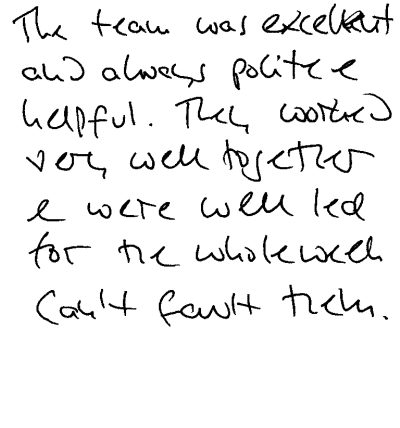 The team was excellent
and always polite &
helpful. They worked
very well together
& were well led
for the whole week
Can't fault them.